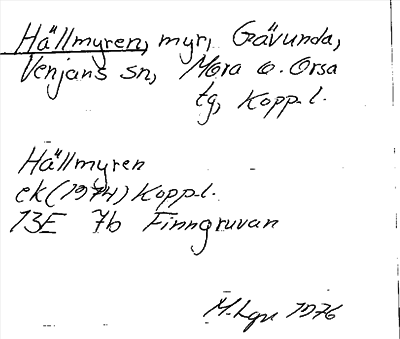 Hällmyren, myr, Gävunda,
Venjans sn, Mora o. Orsa
tg, Kopp.l.
Hällmyren
ek (1974) Kopp.l.
13E 7b Finngruvan
1976